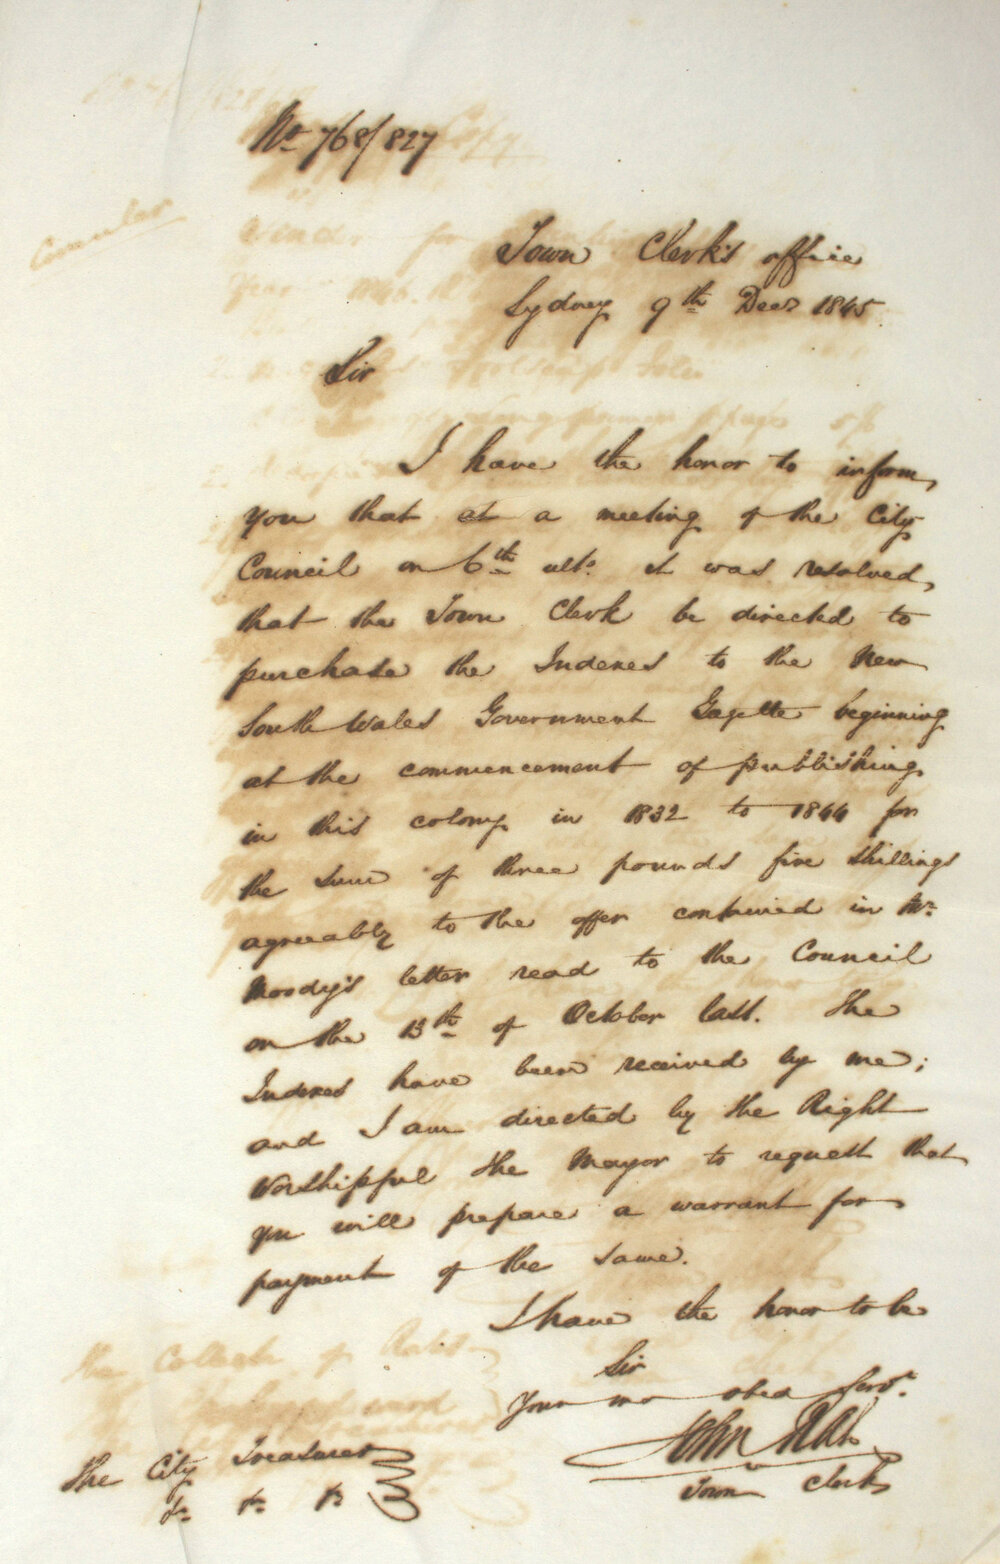 No. 768/827
Circular
Town Clerk's office
Sydney 9th Decr 1845
Sir
I have the honor to inform
you that at a meeting of the City
Council on 6th ulto. it was resolved
that the Town Clerk be directed to
purchase the Indexes to the New
South Wales Government Gazette beginning
at the commencement of publishing
in this colony in 1832 to 1844 for
the sum of three pounds five shillings
agreeably to the offer contained in Mr.
Moody's letter read to the Council
on the 13th of October last. The
Indexes have been received by me;
and I am directed by the Right
Worshipful the Mayor to request that
you will prepare a warrant for
payment of the same.
I have the honor to be
Sir
Your mo obed Servt.
John Rae
Town Clerk
The City Treasurer
&c &c &c